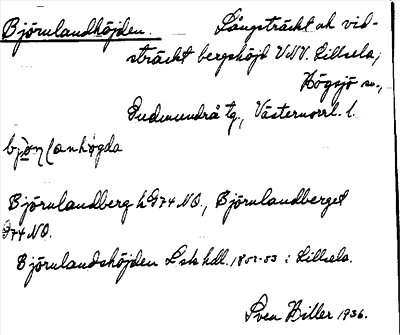 Björnlandhöjden. Långsträckt ock vid-
sträckt bergshöjd VNV. Lillsela,
Högsjö sn.,
Gudmundrå tg., Västernorrl. l.
bjɔ̀ɳlanhøgda
Björnlandberg h G74 NO., Björnlandberget
G74 NO.
Björnlandshöjden Lsk hdl. 1802-03 : Lillsela.
Sven Hiller 1936.